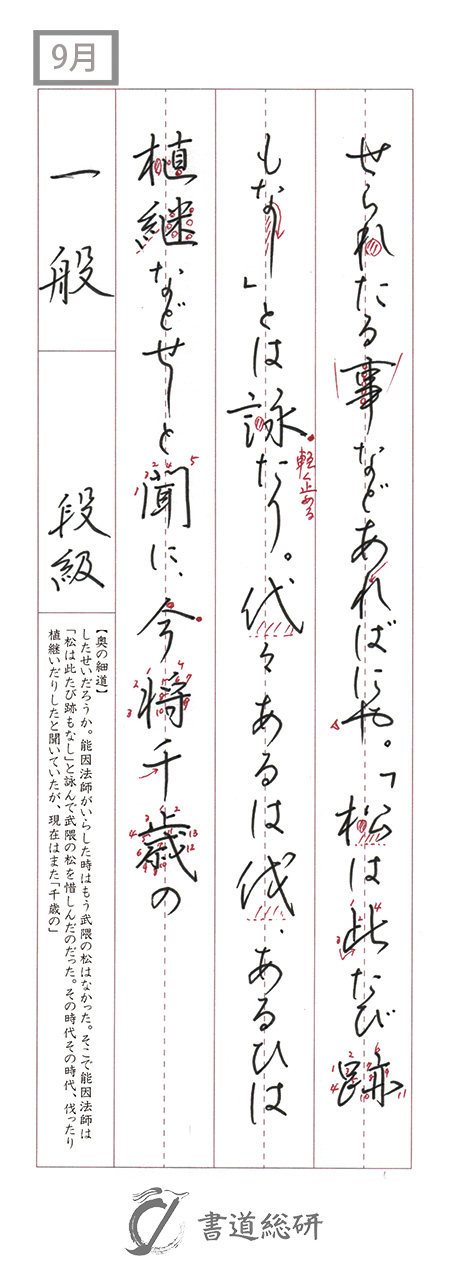 9月
せられたる事などあればにや。「松は此たび跡
もなし」とは詠たり。代々あるは伐、あるひは
軽く止める
植継などせしと聞に、今将千歳の
一般 段級
【奥の細道】
したせいだろうか。能因法師がいらした時はもう武隈の松はなかった。そこで能因法師は
「松は此たび跡もなし」と詠んで武隈の松を惜しんだのだった。その時代その時代、伐ったり
植継いだりしたと聞いていたが、現在はまた「千歳の」
書道総研